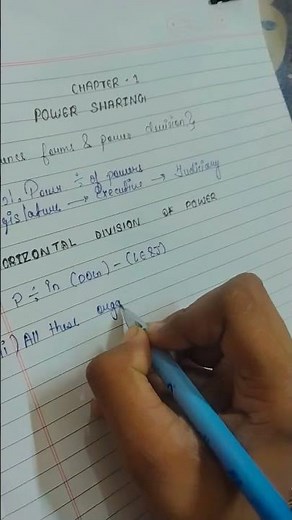 CHAPTER - 1
POWER SHARING
forms & power division}
Power ÷ of powers
gislature → Executive → Judiciary
ORIZONTAL DIVISION OF POWER
P ÷ in (OOG) - (LE&J)
i) All these orga